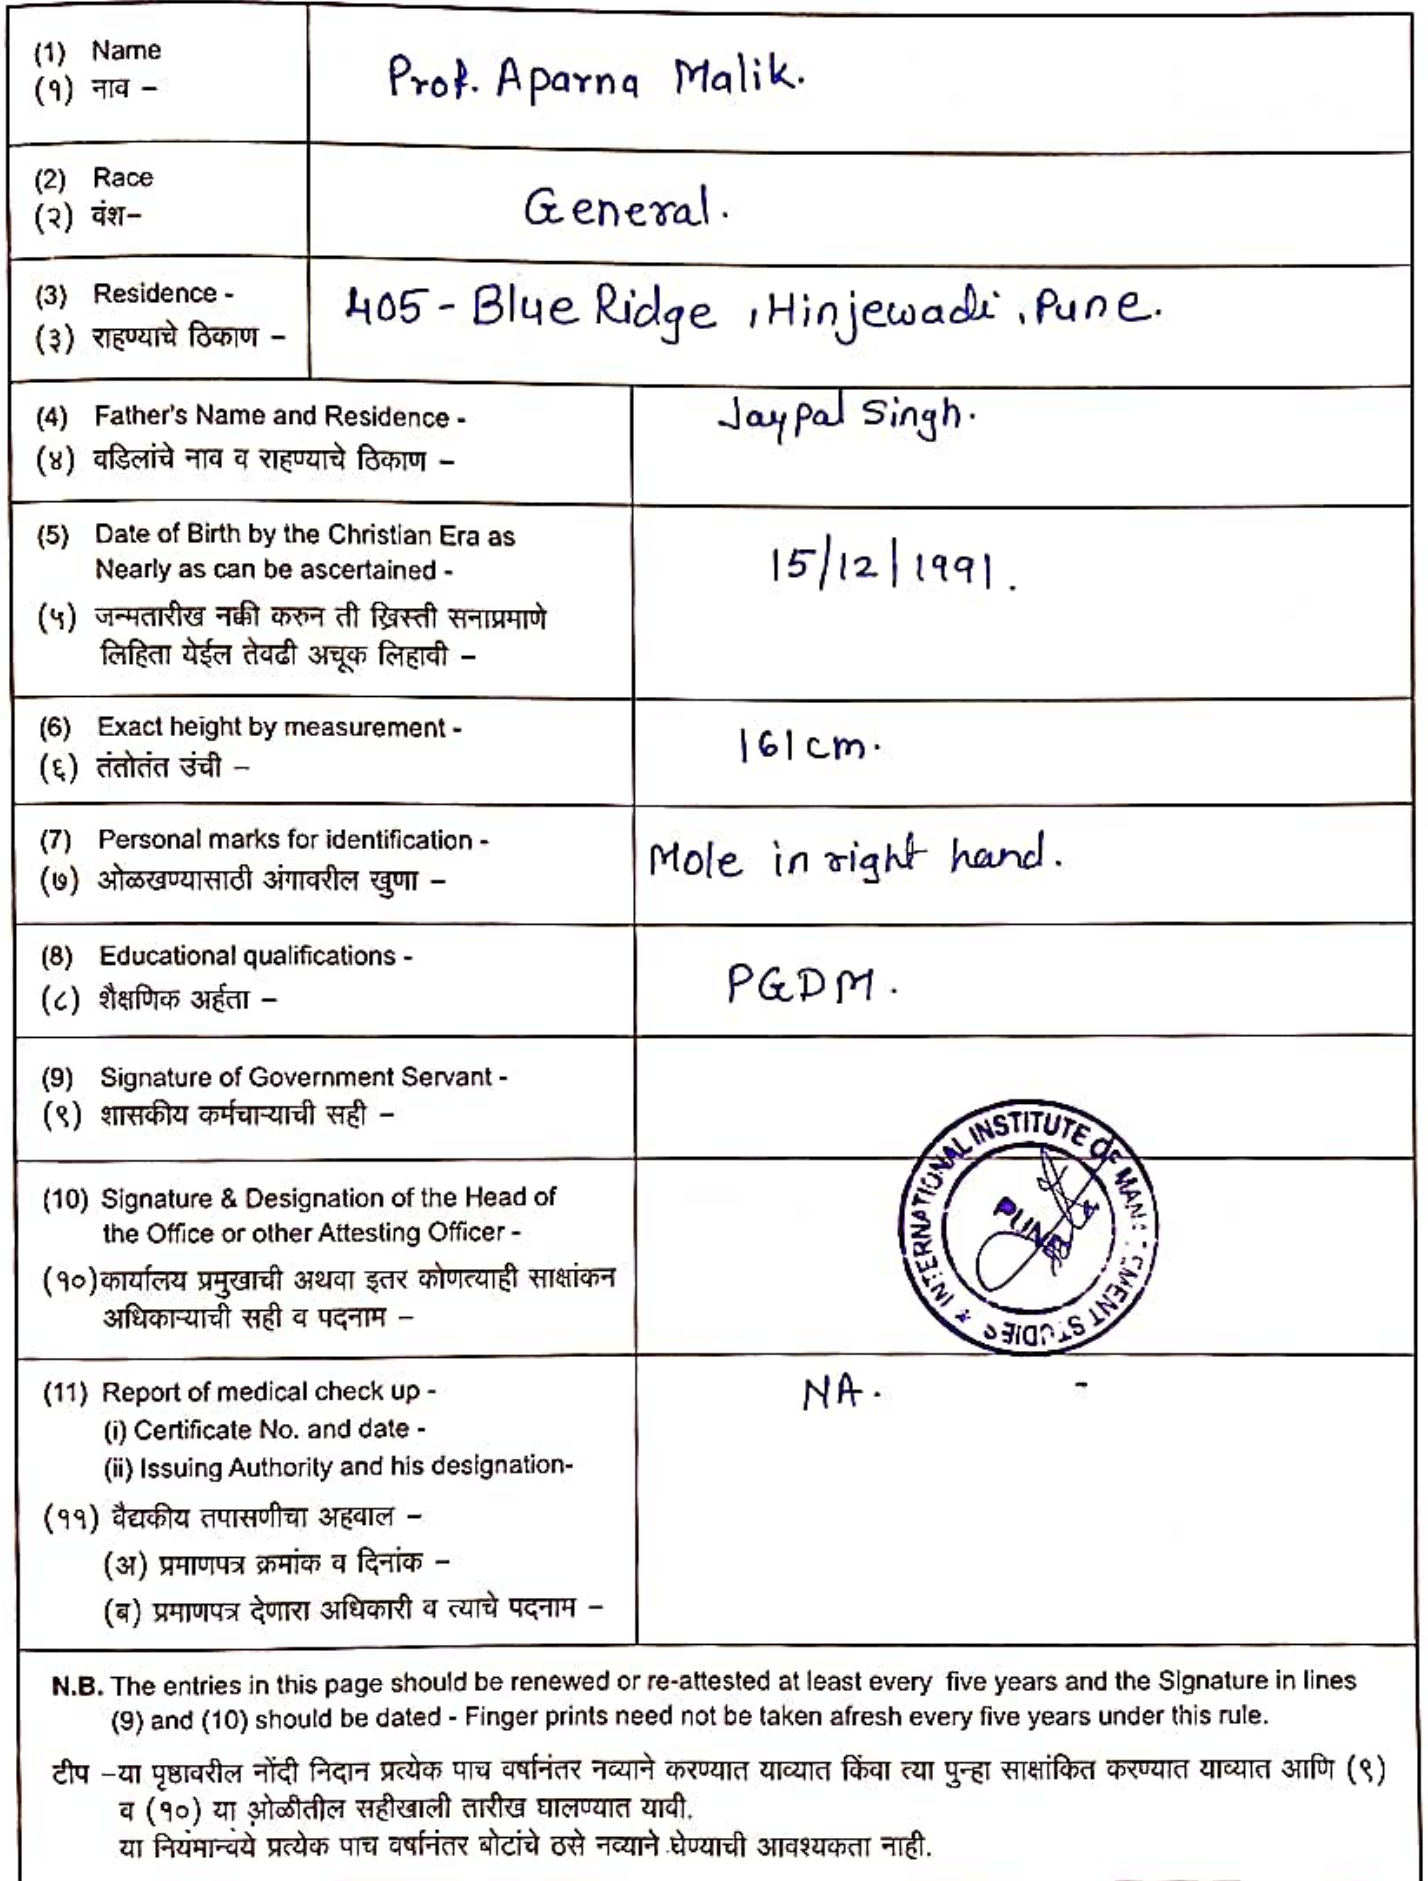 (1) Name
(१) नाव –
Prof. Aparna Malik.
(2) Race
(२) वंश–
General.
(3) Residence -
(३) राहण्याचे ठिकाण –
405 - Blue Ridge , Hinjewadi , Pune.
(4) Father's Name and Residence -
(४) वडिलांचे नाव व राहण्याचे ठिकाण –
Jaypal Singh.
(5) Date of Birth by the Christian Era as
Nearly as can be ascertained -
(५) जन्मतारीख नक्की करुन ती ख्रिस्ती सनाप्रमाणे
लिहिता येईल तेवढी अचूक लिहावी –
15/12/1991.
(6) Exact height by measurement -
(६) तंतोतंत उंची –
161 cm.
(7) Personal marks for identification -
(७) ओळखण्यासाठी अंगावरील खुणा –
Mole in right hand.
(8) Educational qualifications -
(८) शैक्षणिक अर्हता –
PGDM.
(9) Signature of Government Servant -
(९) शासकीय कर्मचाऱ्याची सही –
(10) Signature & Designation of the Head of
the Office or other Attesting Officer -
(१०) कार्यालय प्रमुखाची अथवा इतर कोणत्याही साक्षांकन
अधिकाऱ्याची सही व पदनाम –
INTERNATIONAL INSTITUTE OF MANAGEMENT STUDIES
PUNE
(11) Report of medical check up -
(i) Certificate No. and date -
(ii) Issuing Authority and his designation-
(११) वैद्यकीय तपासणीचा अहवाल –
(अ) प्रमाणपत्र क्रमांक व दिनांक –
(ब) प्रमाणपत्र देणारा अधिकारी व त्याचे पदनाम –
NA. -
N.B. The entries in this page should be renewed or re-attested at least every five years and the Signature in lines
(9) and (10) should be dated - Finger prints need not be taken afresh every five years under this rule.
टीप –या पृष्ठावरील नोंदी निदान प्रत्येक पाच वर्षानंतर नव्याने करण्यात याव्यात किंवा त्या पुन्हा साक्षांकित करण्यात याव्यात आणि (९)
व (१०) या ओळीतील सहीखाली तारीख घालण्यात यावी.
या नियमान्वये प्रत्येक पाच वर्षानंतर बोटांचे ठसे नव्याने घेण्याची आवश्यकता नाही.